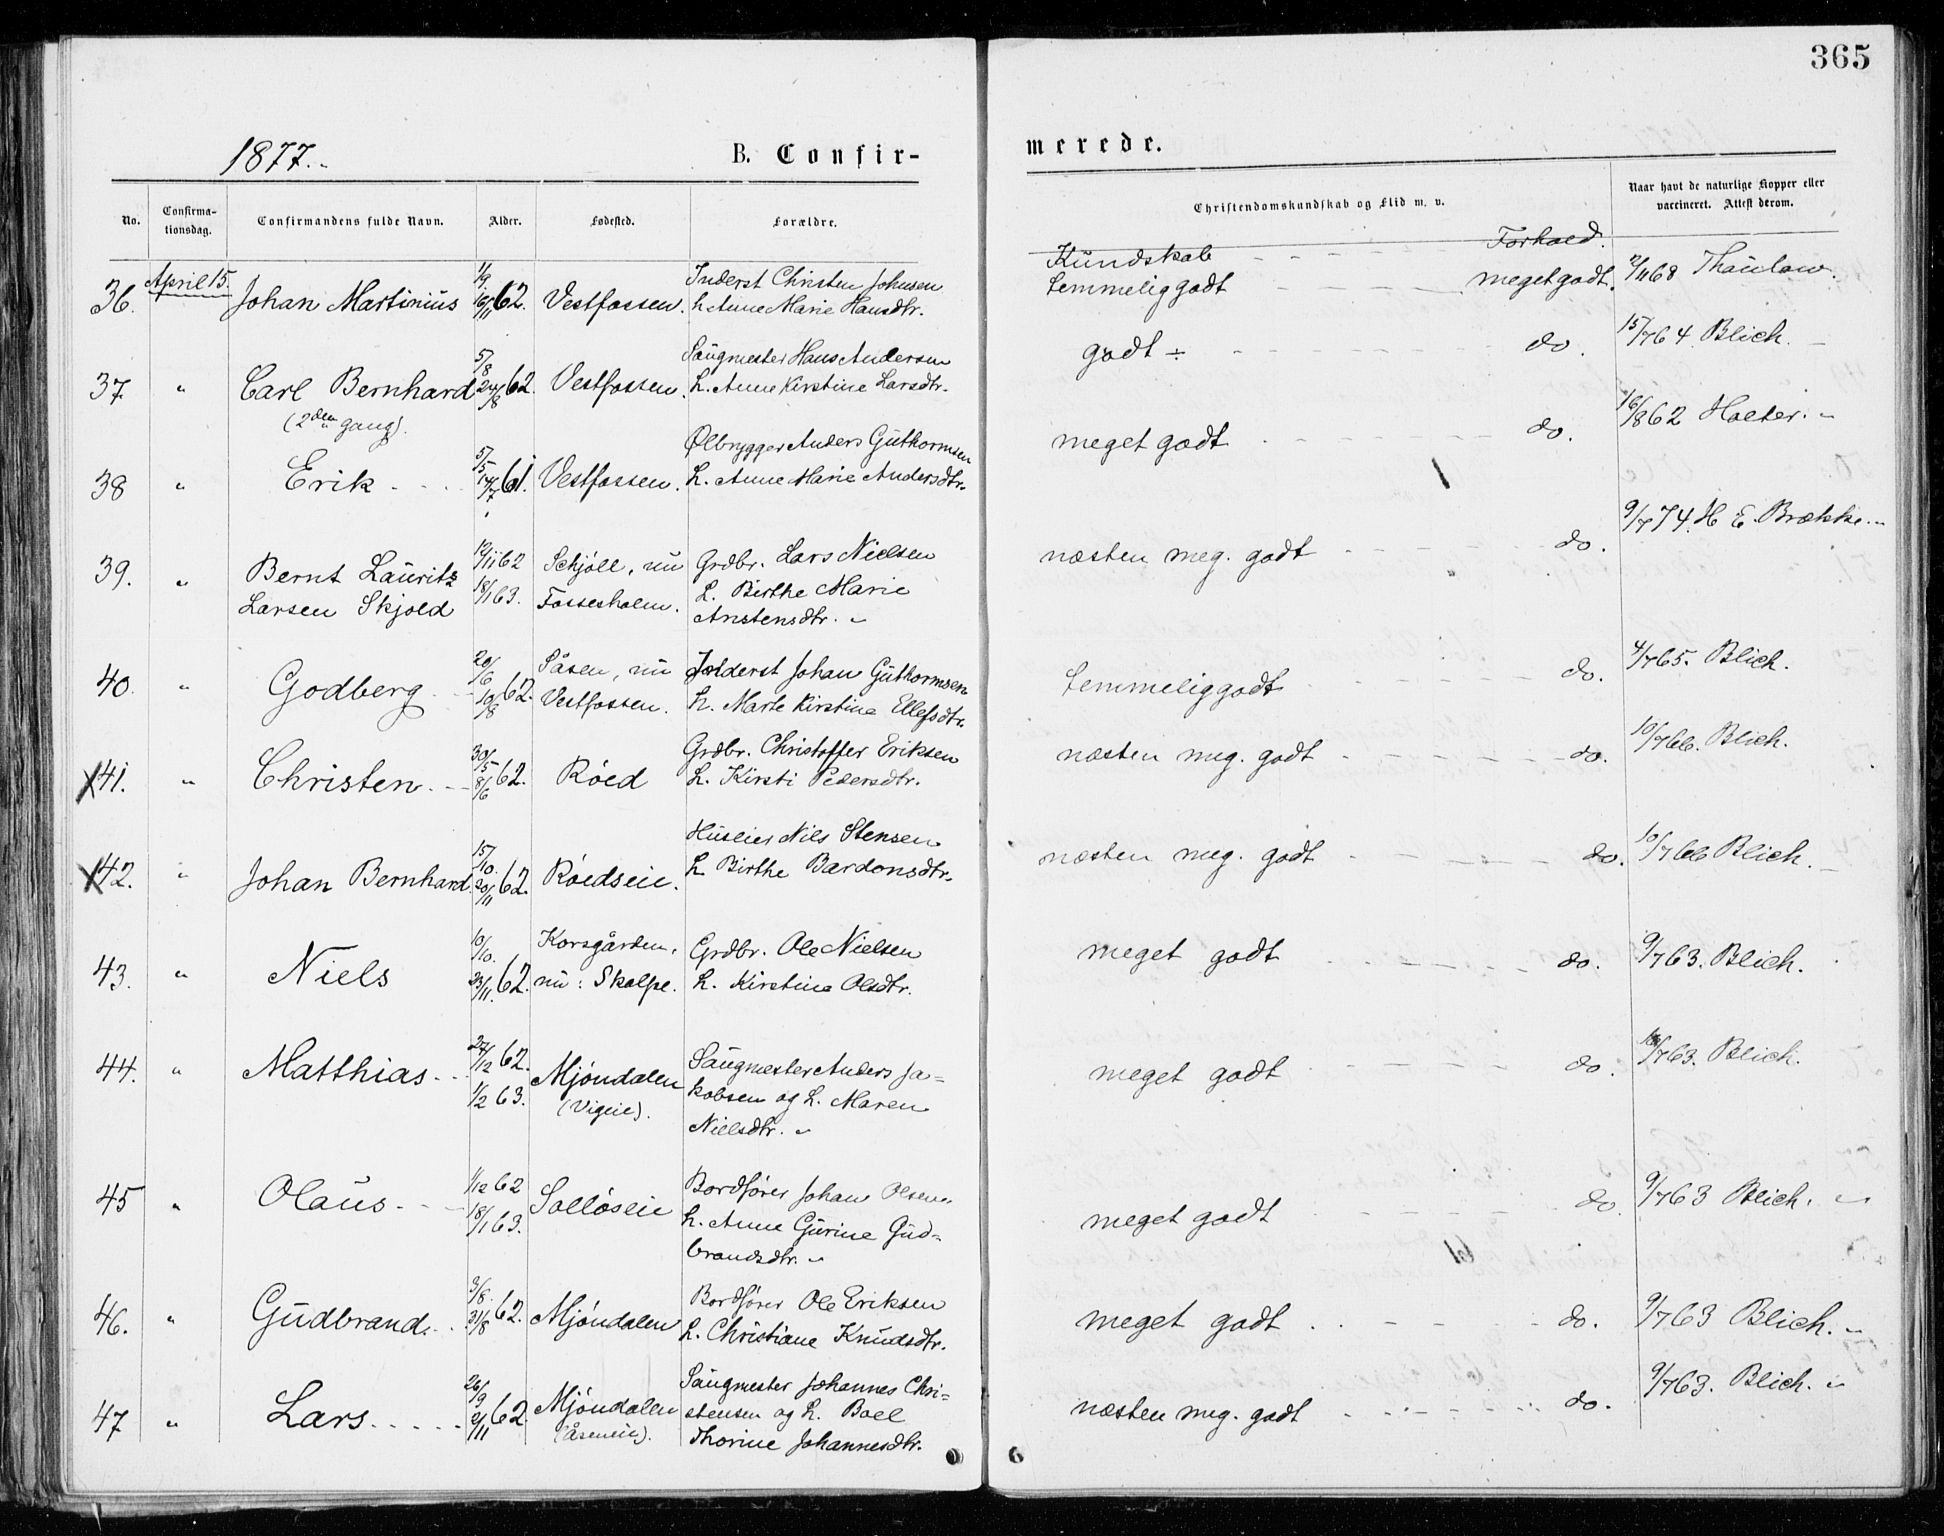 365
1877.
B. Confir-
merede.
No.
Confirma-
tionsdag.
Confirmandens fulde Navn.
Alder.
Fødested.
Forældre.
Christendomskundskab og Flid m. v.
Naar havt de naturlige Kopper eller
vaccineret. Attest derom.
Kundskab - - - - Forhold.
36. April 15. Johan Martinius 1/9. 16/11 62. Vestfossen. Inderst Christen Johnsen
L. Anne Marie Hansdtr.
temmelig godt - - - meget godt. 12/11 68 Thaulow.
37. " Carl Bernhard 5/8 24/8 62. Vestfossen. Saugmester Hans Andersen
L. Anne Kirstine Larsdtr.
(2den gang).
godt ÷ - - - do. 15/7 64. Blich.
38 " Erik - - - 5/5 14/7 61. Vestfossen. Ølbrygger Anders Guthormsen
L. Anne Marie Andersdtr.
meget godt - - - do. 16/8 62 Holter.
39. " Bernt Lauritz
Larsen Skjold
19/11 62
18/1 63.
Schjöll, nu
Fossesholm.
Grdbr. Lars Nielsen
L. Birthe Marie
Anstensdtr.
næsten meg. godt - - - do. 9/7 74. H. E. Brække.
40. " Godberg - 20/6 10/8 62. Såsen, nu
Vestfossen.
Johan Guthormsen
L. Marte Kirstine Ellefsdtr.
temmelig godt - - - do. 4/7 65. Blich.
41. " Christen. - 30/5 8/6 62. Röed Grdbr. Christoffer Eriksen
L. Kirsti Pedersdtr.
næsten meg. godt - - - do. 10/7 66. Blich.
42. " Johan Bernhard 15/10. 20/11 62. Röedseie. Huseier Nils Stensen
L. Birthe Bardonsdtr.
næsten meg. godt - - - do. 10/7 66 Blich.
43. " Niels 10/10. 23/11. 62. Korsgården,
nu: Skalpe.
Grdbr. Ole Nielsen
L. Kirstine Olsdtr.
meget godt - - - do. 9/7 63. Blich.
44. " Matthias - - 27/12 62.
1/2 63.
Mjöndalen
(Vigeie).
Saugmester Anders Ja-
kobsen og L. Maren
Nielsdtr.
meget godt - - - do. /7 63. Blich.
45 " Olaus - - 1/12 62
18/1 63.
Sollöseie Bordförer Johan Olsen
L. Anne Gurine Gud-
brandsdtr.
meget godt - - - do. 9/7 63 Blich.
46. " Gudbrand. - 3/8. 31/8 62. Mjöndalen Bordförer Ole Eriksen
L. Christiane Knudsdtr.
meget godt - - - do. 9/7 63 Blich.
47 " Lars. - - - 26/9 2/11 62. Mjöndalen
(Åseneie).
Saugmester Johannes Chri-
stensen og L. Boel
Thorine Johannesdtr.
næsten meg. godt - - - do. 9/7 63. Blich.
6